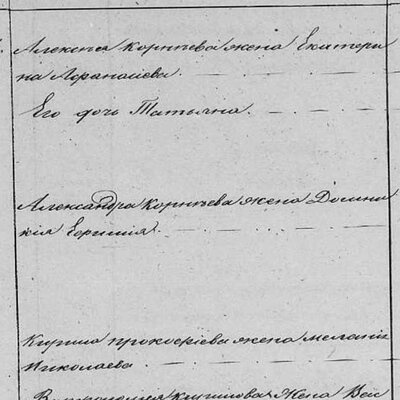 Алексея Корнѣева жена Екатери
на Афанасьева
Его дочь Татьяна
Александра Корнѣева жена Домни
кія
Кирила прокофіева жена меланія
Николаева
Кирилова жена Вас